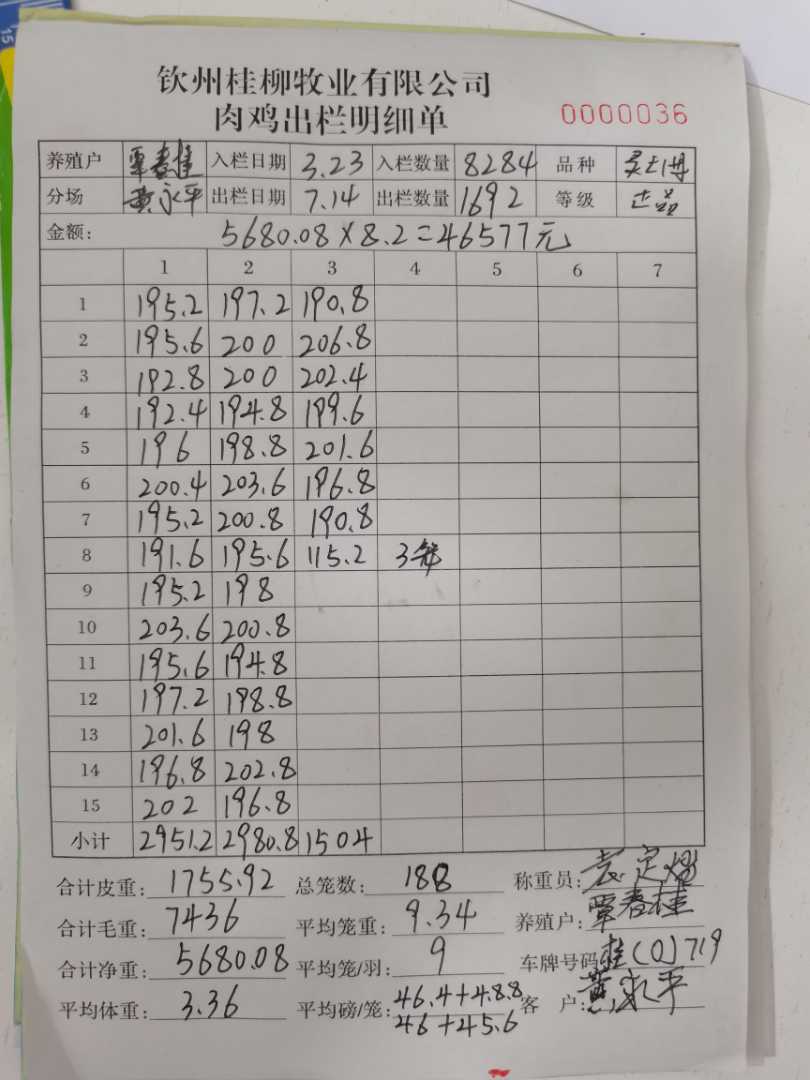 钦州桂柳牧业有限公司
肉鸡出栏明细单 0000036
养殖户 覃春桂 入栏日期 3.23 入栏数量 8284 品种
分场 黄永平 出栏日期 7.14 出栏数量 1692 等级 正品
金额: 5680.08×8.2=46577元
1 2 3 4 5 6 7
1 195.2 197.2 190.8
2 195.6 200 206.8
3 192.8 200 202.4
4 192.4 194.8 199.6
5 196 198.8 201.6
6 200.4 203.6 196.8
7 195.2 200.8 190.8
8 191.6 195.6 115.2 3笼
9 195.2 198
10 203.6 200.8
11 195.6 194.8
12 197.2 198.8
13 201.6 198
14 196.8 202.8
15 202 196.8
小计 2951.2 2980.8 1504
合计皮重: 1755.92 总笼数: 188 称重员:
合计毛重: 7436 平均笼重: 9.34 养殖户: 覃春桂
合计净重: 5680.08 平均笼/羽: 9 车牌号码: 桂(0)719
平均体重: 3.36 平均磅/笼: 46.4+48.8 客户: 黄永平
46+45.6